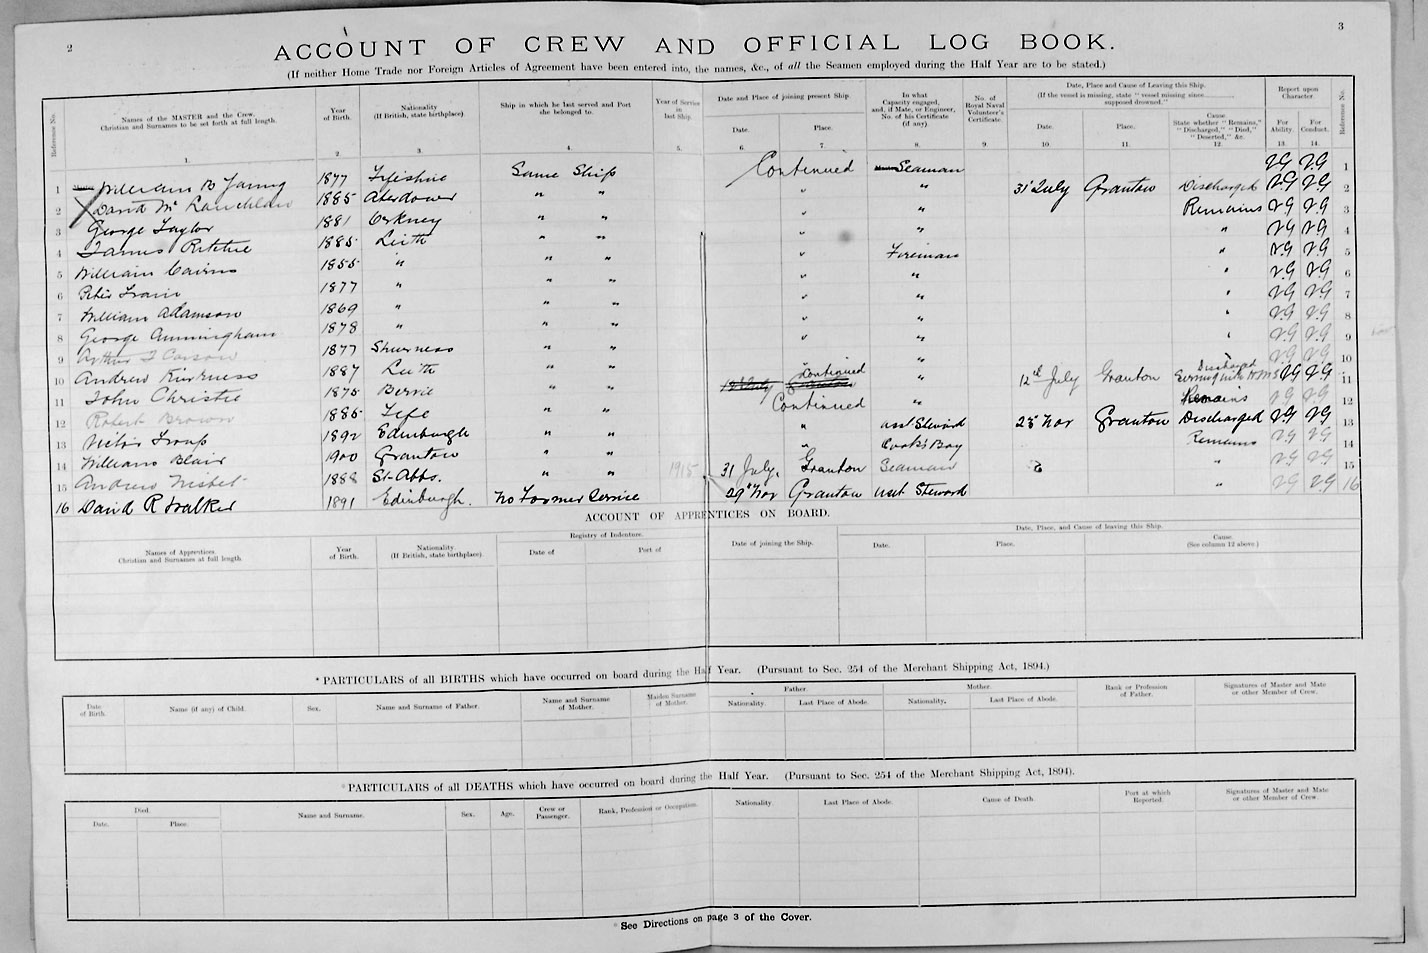 2
3
ACCOUNT OF CREW AND OFFICIAL LOG BOOK.
(If neither Home Trade nor Foreign Articles of Agreement have been entered into, the names, &c., of all the Seamen employed during the Half Year are to be stated.)
Reference No.
Names of the MASTER and the Crew. Christian and Surnames to be set forth at full length.
Year of Birth.
Nationality (If British, state birthplace).
Ship in which he last served and Port she belonged to.
Year of Service in last Ship.
Date and Place of joining present Ship.
Date.
Place.
In what Capacity engaged, and, if Mate, or Engineer, No. of his Certificate (if any).
No. of Royal Naval Volunteer's Certificate.
Date, Place and Cause of Leaving this Ship.
(If the vessel is missing, state "vessel missing since supposed drowned.")
Date.
Place.
Cause State whether "Remains," "Discharged," "Died," "Deserted," &c.
Report upon Character.
For Ability.
For Conduct.
Reference No.
1. 2. 3. 4. 5. 6. 7. 8. 9. 10. 11. 12. 13. 14.
1 William B Young 1877 Fifeshire Same Ship Continued Seaman V.G V.G 1
2 David Mc Lauchlan 1885 Aberdour " " " " 31st July Granton Discharged V.G V.G 2
3 George Taylor 1881 Orkney " " " " Remains V.G V.G 3
4 James Ritchie 1885 Leith " " " " V.G V.G 4
5 William Cairns 1855 " " " " Fireman " V.G V.G 5
6 Peter 1877 " " " " " V.G V.G 6
7 William Adamson 1869 " " " " " " V.G V.G 7
8 George Cunningham 1878 " " " " " " V.G V.G 8
9 Arthur J Carson 1877 Sheerness " " " " " V.G V.G 9
10 Andrew Kirkness 1887 Leith " " " " V.G V.G 10
11 John Christie 1875 Bervie " " Continued " 12th July Granton Discharged V.G V.G 11
12 Robert Brown 1885 Fife " " Continued " Remains V.G V.G 12
13 Victor 1892 Edinburgh " " " asst Steward 28th Nov Granton Discharged V.G V.G 13
14 William Blair 1900 Granton " " " Cook's Boy Remains V.G V.G 14
15 Andrew Nisbet 1888 St. Abbs. " " 1915 31 July. Granton Seaman " V.G V.G 15
16 David R Walker 1891 Edinburgh. No Former Service 29th Nov Granton asst Steward " V.G V.G 16
ACCOUNT OF APPRENTICES ON BOARD.
Names of Apprentices. Christian and Surnames at full length.
Year of Birth.
Nationality. (If British, state birthplace).
Registry of Indenture.
Date of
Port of
Date of joining the Ship.
Date, Place, and Cause of leaving this Ship.
Date.
Place.
Cause. (See column 12 above.)
* PARTICULARS of all BIRTHS which have occurred on board during the Half Year. (Pursuant to Sec. 254 of the Merchant Shipping Act, 1894.)
Date of Birth.
Name (if any) of Child.
Sex.
Name and Surname of Father.
Name and Surname of Mother.
Maiden Surname of Mother.
Father.
Nationality.
Last Place of Abode.
Mother.
Nationality.
Last Place of Abode.
Rank or Profession of Father.
Signatures of Master and Mate or other Member of Crew.
* PARTICULARS of all DEATHS which have occurred on board during the Half Year. (Pursuant to Sec. 254 of the Merchant Shipping Act, 1894).
Died.
Date.
Place.
Name and Surname.
Sex.
Age.
Crew or Passenger.
Rank, Profession or Occupation.
Nationality.
Last Place of Abode.
Cause of Death.
Port at which Reported.
Signatures of Master and Mate or other Member of Crew
* See Directions on page 3 of the Cover.